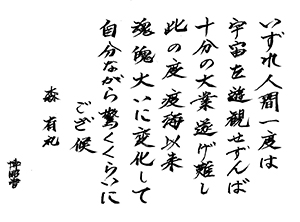 いずれ人間一度は
宇宙を遊観せずんば
十分の大業遂げ難し
此の度渡海以来
魂魄大いに変化して
自分ながら驚くくらいに
ござ候
森有礼